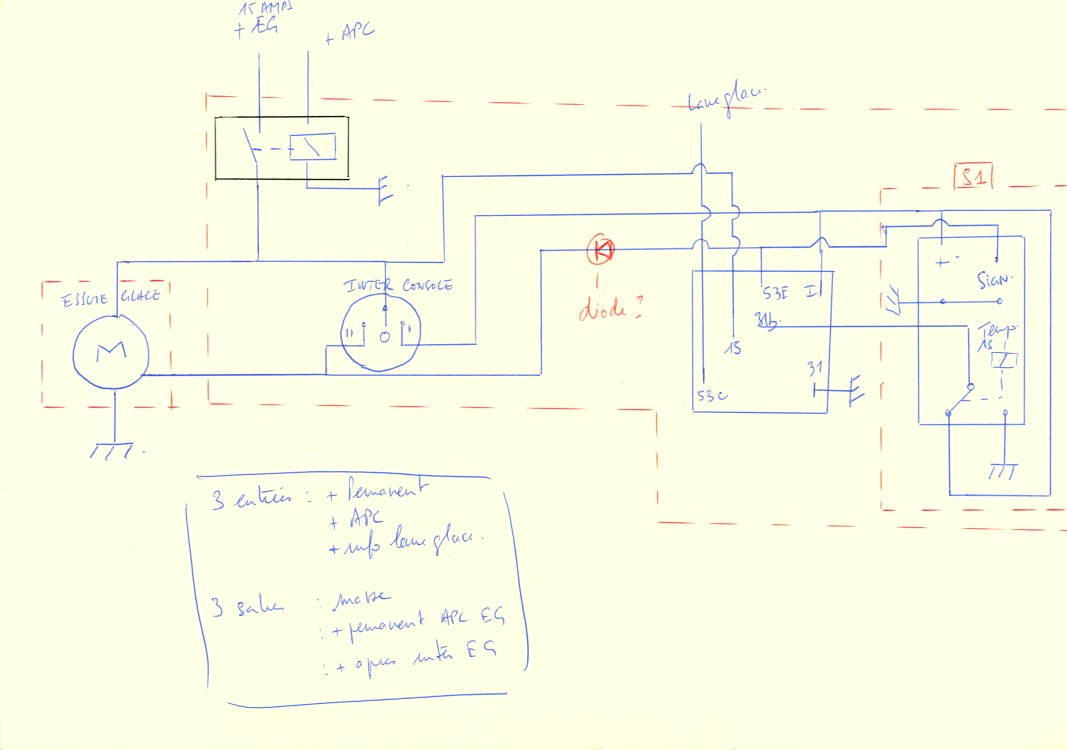 15 AMPS
+ EG
+ APC
lave glace.
S1
ESSUIE GLACE
M
INTER CONSOLE
II
O
I
diode?
53E
I
31b.
15
31
53c
+
Sign.
Temp.
15
3 entrées : + Permanent
+ APC
+ info lave glace.
3 sorties : masse
: + permanent APC EG
: + apres inter EG